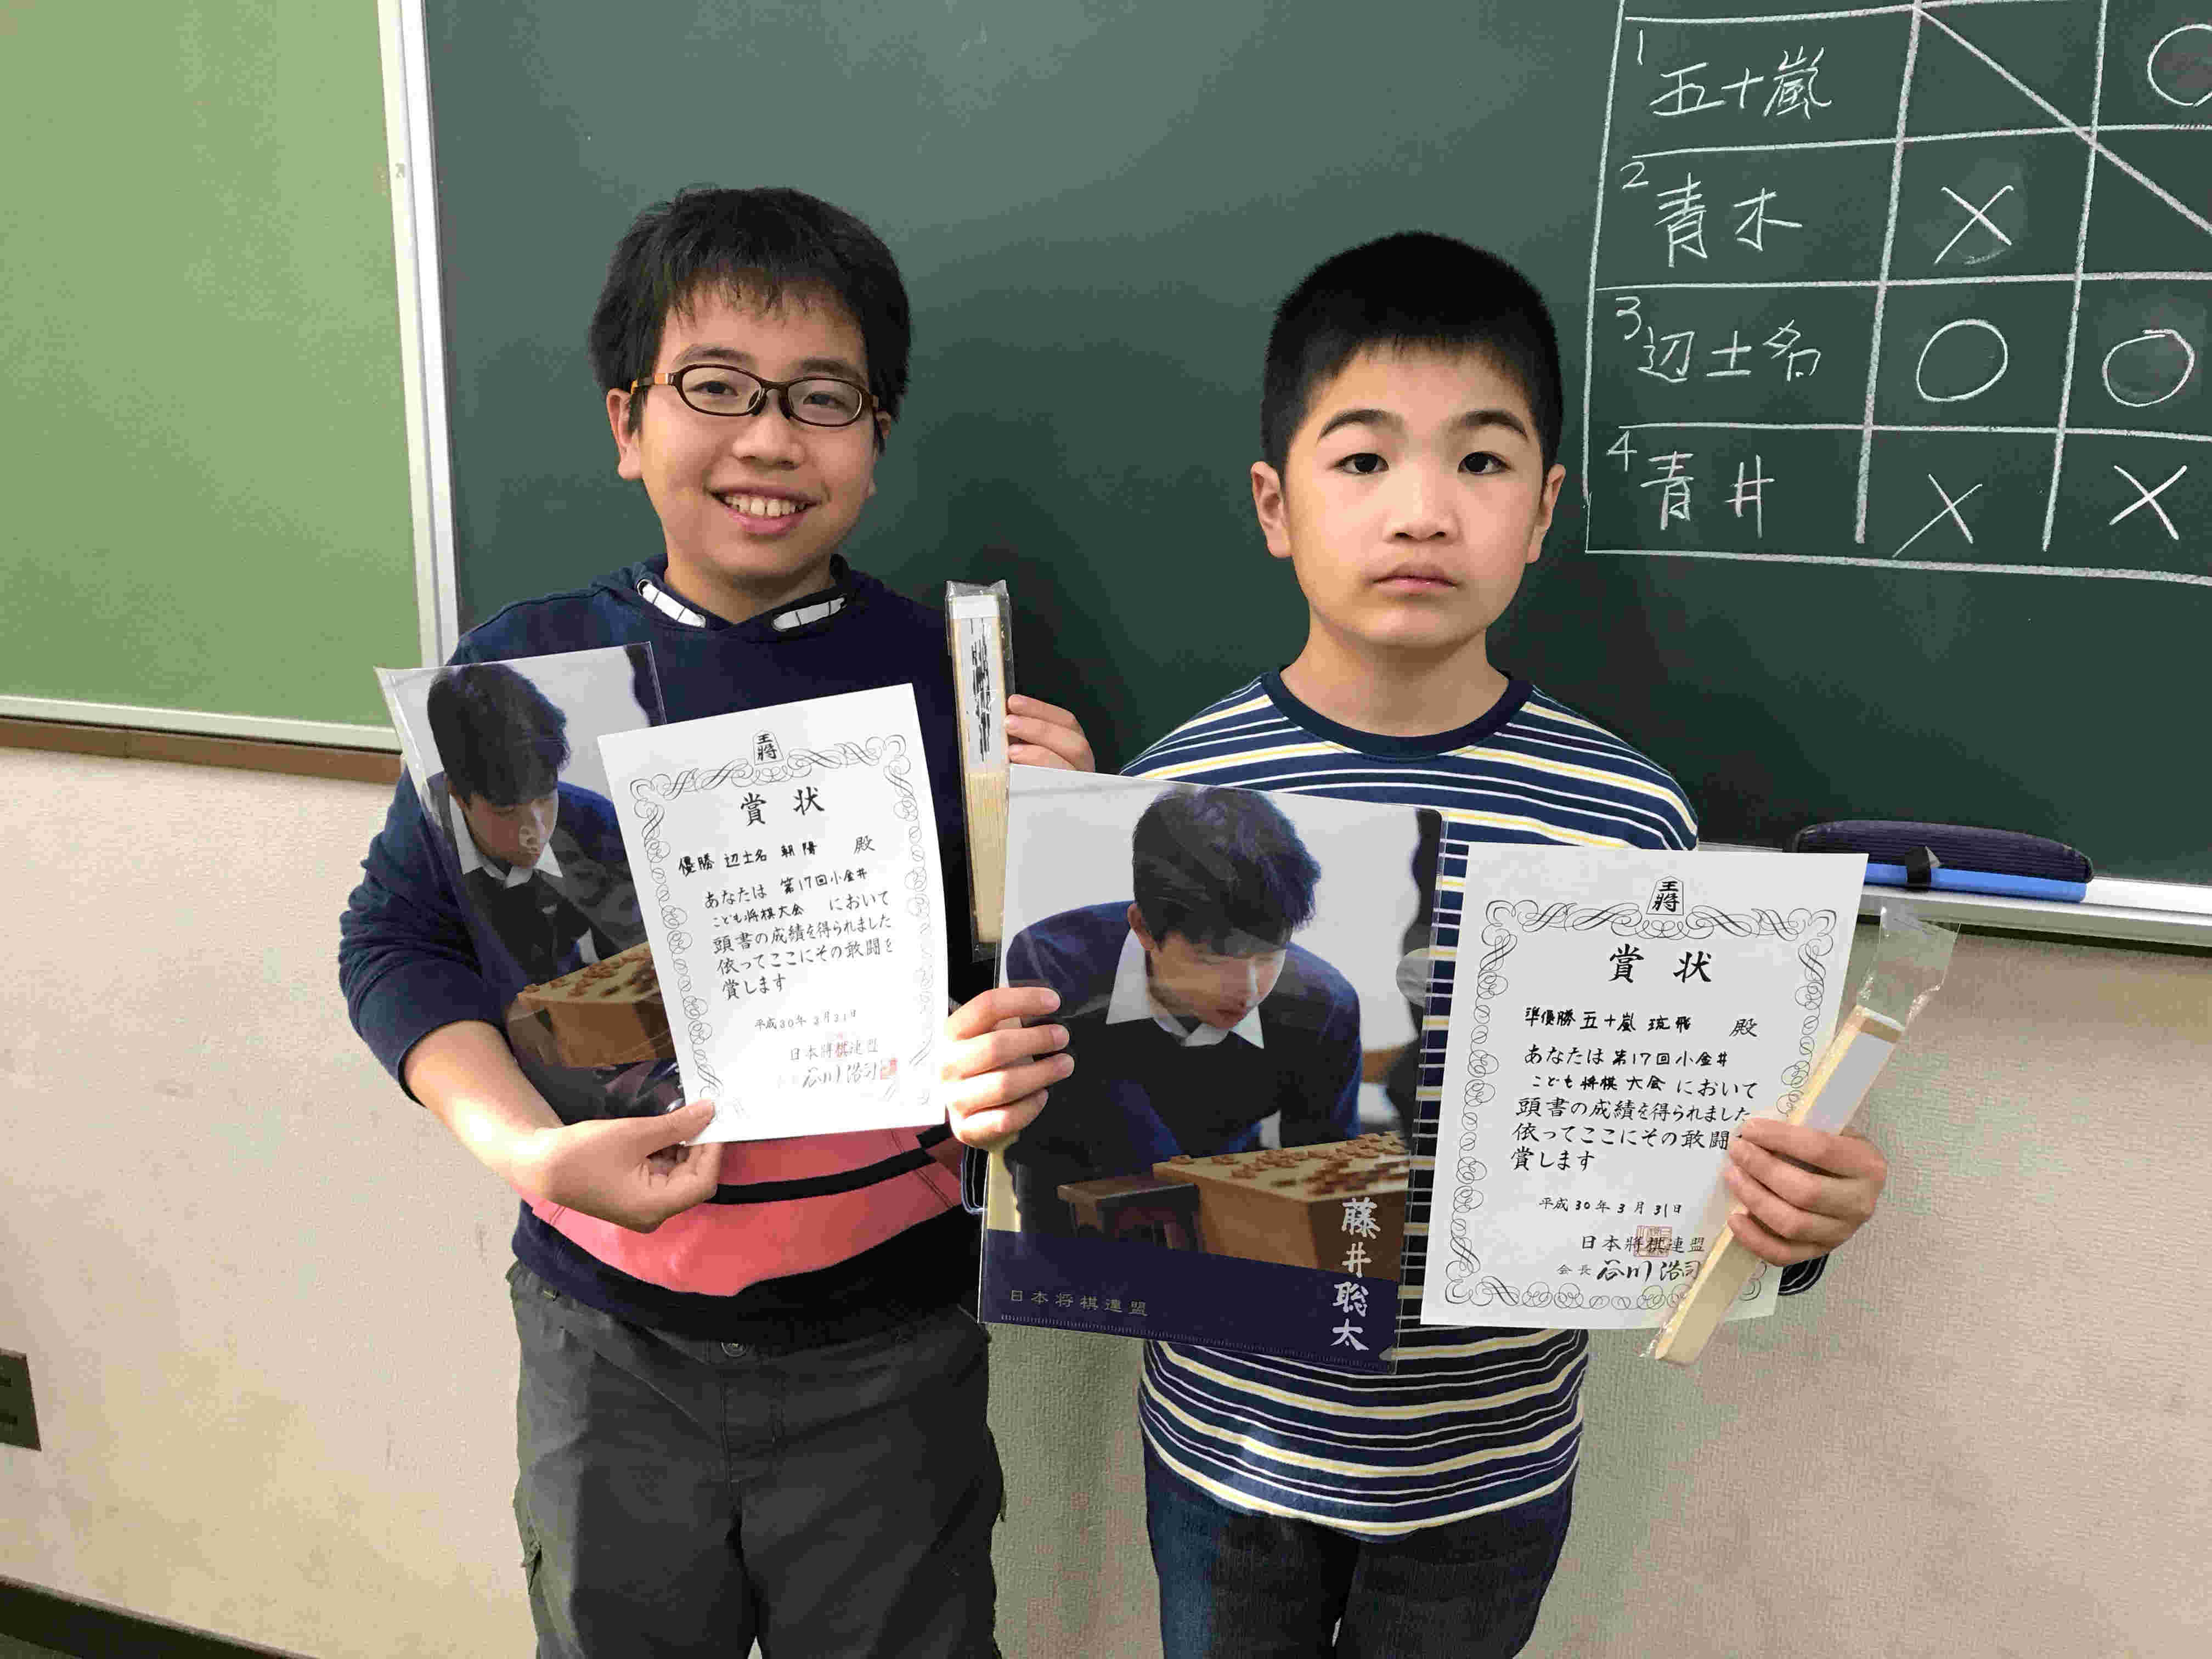 1 五十嵐 ○
2 青木 ×
3 辺土名 ○ ○
4 青井 × ×
王将
賞状
優勝 辺土名 朝陽 殿
あなたは 第17回小金井
こども将棋大会 において
頭書の成績を得られました
依ってここにその敢闘を
賞します
平成30年3月31日
日本将棋連盟
谷川浩司
藤井聡太
日本将棋連盟
王将
賞状
準優勝 五十嵐 琉飛 殿
あなたは 第17回小金井
こども将棋大会 において
頭書の成績を得られました
依ってここにその敢闘
賞します
平成30年3月31日
日本将棋連盟
会長 谷川浩司